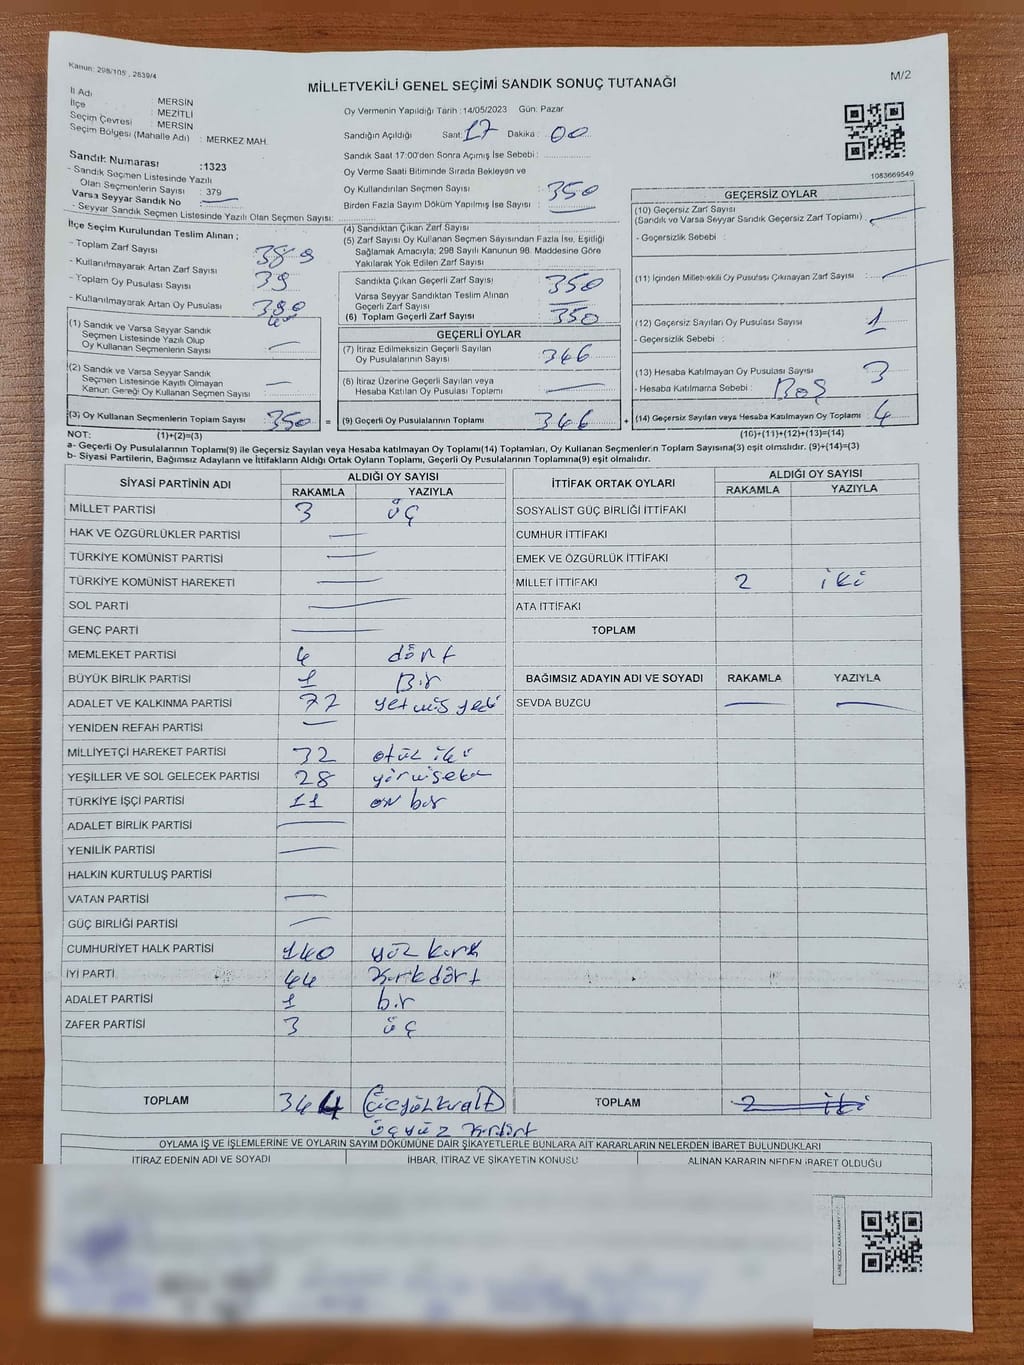 Kanun: 298/105, 2839/4
MİLLETVEKİLİ GENEL SEÇİMİ SANDIK SONUÇ TUTANAĞI
M/2
İl Adı : MERSİN
İlçe : MEZİTLİ
Seçim Çevresi : MERSİN
Seçim Bölgesi (Mahalle Adı) : MERKEZ MAH.
Sandık Numarası :1323
- Sandık Seçmen Listesinde Yazılı
Olan Seçmenlerin Sayısı : 379
Varsa Seyyar Sandık No
- Seyyar Sandık Seçmen Listesinde Yazılı Olan Seçmen Sayısı:
Oy Vermenin Yapıldığı Tarih :14/05/2023 Gün: Pazar
Sandığın Açıldığı Saat: 17 Dakika : 00
Sandık Saat 17:00'den Sonra Açımış İse Sebebi :
Oy Verme Saati Bitiminde Sırada Bekleyen ve
Oy Kullandırılan Seçmen Sayısı : 350
Birden Fazla Sayım Döküm Yapılmış İse Sayısı :
1083669549
İlçe Seçim Kurulundan Teslim Alınan ;
- Toplam Zarf Sayısı 389
- Kullanılmayarak Artan Zarf Sayısı 39
- Toplam Oy Pusulası Sayısı
- Kullanılmayarak Artan Oy Pusulası
(1) Sandık ve Varsa Seyyar Sandık
Seçmen Listesinde Yazılı Olup
Oy Kullanan Seçmenlerin Sayısı
(2) Sandık ve Varsa Seyyar Sandık
Seçmen Listesinde Kayıtlı Olmayan
Kanun Gereği Oy Kullanan Seçmen Sayısı
(3) Oy Kullanan Seçmenlerin Toplam Sayısı 350 =
(4) Sandıktan Çıkan Zarf Sayısı
(5) Zarf Sayısı Oy Kullanan Seçmen Sayısından Fazla İse, Eşitliği
Sağlamak Amacıyla; 298 Sayılı Kanunun 98. Maddesine Göre
Yakılarak Yok Edilen Zarf Sayısı
Sandıkta Çıkan Geçerli Zarf Sayısı 350
Varsa Seyyar Sandıktan Teslim Alınan
Geçerli Zarf Sayısı
(6) Toplam Geçerli Zarf Sayısı 350
GEÇERLİ OYLAR
(7) İtiraz Edilmeksizin Geçerli Sayılan
Oy Pusulalarının Sayısı 346
(8) İtiraz Üzerine Geçerli Sayılan veya
Hesaba Katılan Oy Pusulası Toplamı
(9) Geçerli Oy Pusulalarının Toplamı 346 +
GEÇERSİZ OYLAR
(10) Geçersiz Zarf Sayısı
(Sandık ve Varsa Seyyar Sandık Geçersiz Zarf Toplamı)
- Geçersizlik Sebebi :
(11) İçinden Milletvekili Oy Pusulası Çıkmayan Zarf Sayısı
(12) Geçersiz Sayılan Oy Pusulası Sayısı : 1
- Geçersizlik Sebebi :
(13) Hesaba Katılmayan Oy Pusulası Sayısı : 3
- Hesaba Katılmama Sebebi : BOŞ
(14) Geçersiz Sayılan veya Hesaba Katılmayan Oy Toplamı 4
NOT: (1)+(2)=(3) (10)+(11)+(12)+(13)=(14)
a- Geçerli Oy Pusulalarının Toplamı(9) ile Geçersiz Sayılan veya Hesaba Katılmayan Oy Toplamı(14) Toplamları, Oy Kullanan Seçmenlerin Toplam Sayısına(3) eşit olmalıdır. (9)+(14)=(3)
b- Siyasi Partilerin, Bağımsız Adayların ve İttifakların Aldığı Oyların Toplamı, Geçerli Oy Pusulalarının Toplamına(9) eşit olmalıdır.
SİYASİ PARTİNİN ADI ALDIĞI OY SAYISI
RAKAMLA YAZIYLA
MİLLET PARTİSİ 3 üç
HAK VE ÖZGÜRLÜKLER PARTİSİ
TÜRKİYE KOMÜNİST PARTİSİ
TÜRKİYE KOMÜNİST HAREKETİ
SOL PARTİ
GENÇ PARTİ
MEMLEKET PARTİSİ 4 dört
BÜYÜK BİRLİK PARTİSİ 1 Bir
ADALET VE KALKINMA PARTİSİ 77 yetmiş yedi
YENİDEN REFAH PARTİSİ
MİLLİYETÇİ HAREKET PARTİSİ 32 otuz iki
YEŞİLLER VE SOL GELECEK PARTİSİ 28
TÜRKİYE İŞÇİ PARTİSİ 11 on bir
ADALET BİRLİK PARTİSİ
YENİLİK PARTİSİ
HALKIN KURTULUŞ PARTİSİ
VATAN PARTİSİ
GÜÇ BİRLİĞİ PARTİSİ
CUMHURİYET HALK PARTİSİ 140 yüz kırk
İYİ PARTİ 44 kırkdört
ADALET PARTİSİ 1 bir
ZAFER PARTİSİ 3 üç
TOPLAM 344
İTTİFAK ORTAK OYLARI ALDIĞI OY SAYISI
RAKAMLA YAZIYLA
SOSYALİST GÜÇ BİRLİĞİ İTTİFAKI
CUMHUR İTTİFAKI
EMEK VE ÖZGÜRLÜK İTTİFAKI
MİLLET İTTİFAKI 2 iki
ATA İTTİFAKI
TOPLAM
BAĞIMSIZ ADAYIN ADI VE SOYADI RAKAMLA YAZIYLA
SEVDA BUZCU
TOPLAM 2 iki
OYLAMA İŞ VE İŞLEMLERİNE VE OYLARIN SAYIM DÖKÜMÜNE DAİR ŞİKAYETLERLE BUNLARA AİT KARARLARIN NELERDEN İBARET BULUNDUKLARI
İTİRAZ EDENİN ADI VE SOYADI İHBAR, İTİRAZ VE ŞİKAYETİN KONUSU ALINAN KARARIN NEDEN İBARET OLDUĞU